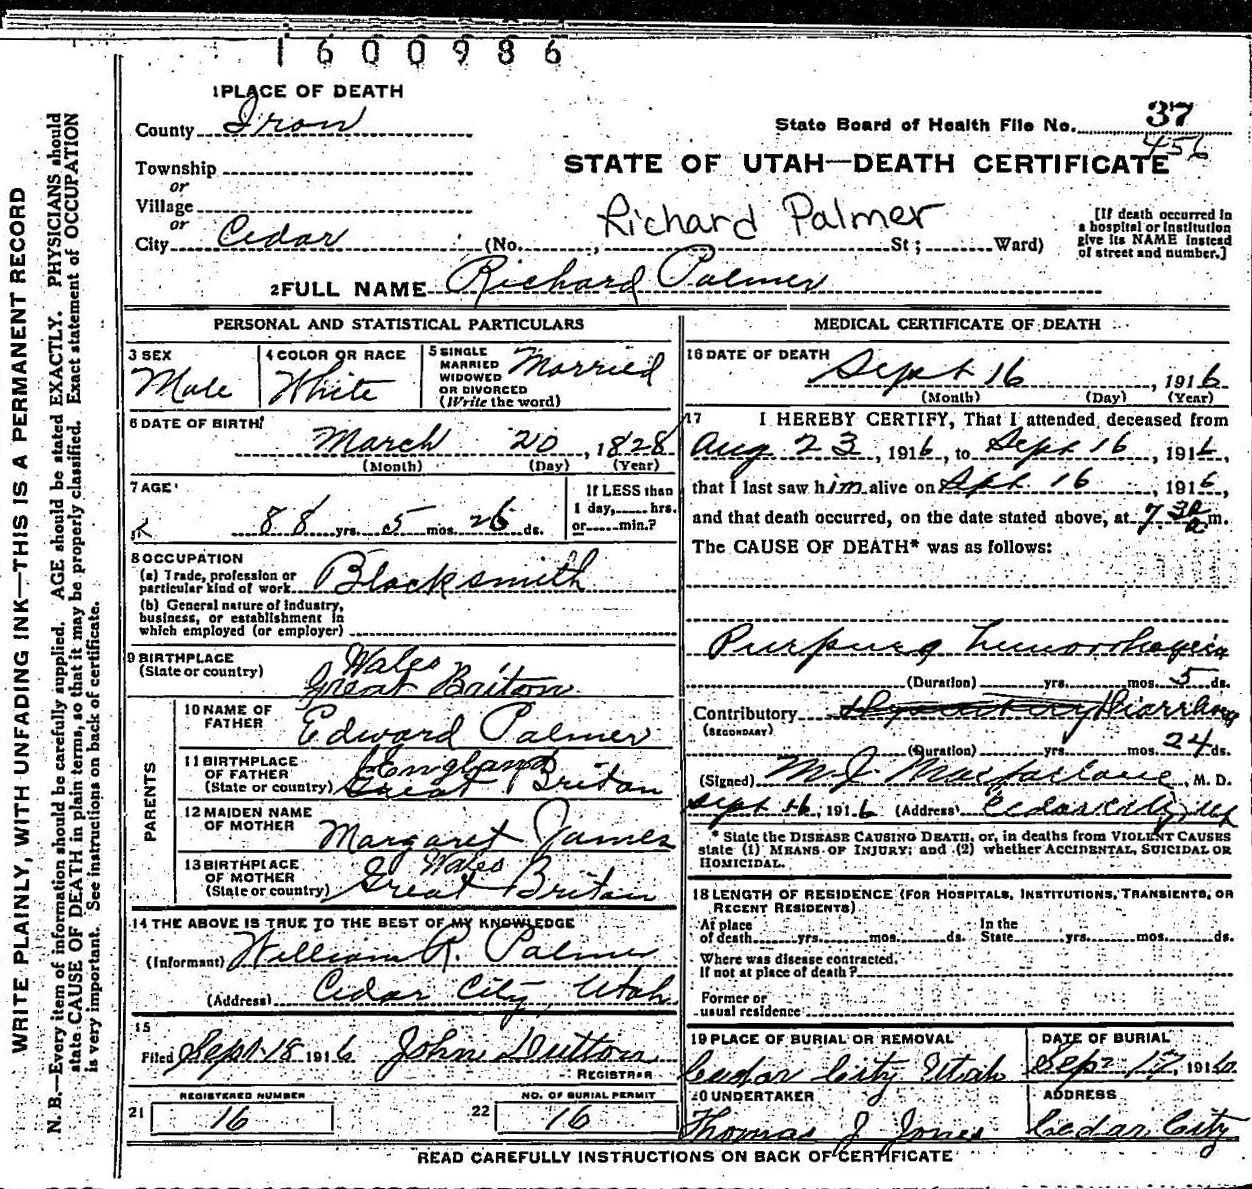 1600986
1 PLACE OF DEATH
County Iron
State Board of Health File No. 37
456
Township
or
STATE OF UTAH—DEATH CERTIFICATE
Village
or
Richard Palmer
City Cedar (No. , St; Ward)
[If death occurred in
a hospital or institution
give its NAME instead
of street and number.]
2 FULL NAME Richard Palmer
PERSONAL AND STATISTICAL PARTICULARS
3 SEX
Male
4 COLOR OR RACE
White
5 SINGLE
MARRIED
WIDOWED
OR DIVORCED
(Write the word)
Married
6 DATE OF BIRTH
March 20, 1828
(Month) (Day) (Year)
7 AGE
88 yrs. 5 mos. 26 ds.
If LESS than
1 day, hrs.
or min.?
8 OCCUPATION
(a) Trade, profession or
particular kind of work Blacksmith
(b) General nature of industry,
business, or establishment in
which employed (or employer)
9 BIRTHPLACE
(State or country)
Wales
Great Briton
PARENTS
10 NAME OF
FATHER
Edward Palmer
11 BIRTHPLACE
OF FATHER
(State or country)
England
Great Briton
12 MAIDEN NAME
OF MOTHER
Margaret James
13 BIRTHPLACE
OF MOTHER
(State or country)
Wales
Great Britian
14 THE ABOVE IS TRUE TO THE BEST OF MY KNOWLEDGE
(Informant) William R. Palmer
(Address) Cedar City, Utah
15
Filed Sept 18 1916 John
REGISTRAR
REGISTERED NUMBER
21 16
NO. OF BURIAL PERMIT
22 16
MEDICAL CERTIFICATE OF DEATH
16 DATE OF DEATH
Sept 16, 1916
(Month) (Day) (Year)
17 I HEREBY CERTIFY, That I attended deceased from
Aug 23, 1916, to Sept 16, 1916,
that I last saw him alive on Sept 16, 1916,
and that death occurred, on the date stated above, at 7 30 a m.
The CAUSE OF DEATH* was as follows:
Purpura
(Duration) yrs. mos. 5 ds.
Contributory
(SECONDARY)
(Duration) yrs. mos. 24 ds.
(Signed) M. J. Macfarlane, M. D.
Sept 16, 1916 (Address) Cedar City, Ut
* State the DISEASE CAUSING DEATH, or, in deaths from VIOLENT CAUSES
state (1) MEANS OF INJURY; and (2) whether ACCIDENTAL, SUICIDAL OR
HOMICIDAL.
18 LENGTH OF RESIDENCE (FOR HOSPITALS, INSTITUTIONS, TRANSIENTS, OR
RECENT RESIDENTS)
At place In the
of death yrs. mos. ds. State yrs. mos. ds.
Where was disease contracted,
If not at place of death?
Former or
usual residence
19 PLACE OF BURIAL OR REMOVAL
Cedar City Utah
DATE OF BURIAL
Sep 17, 1916.
20 UNDERTAKER
Thomas J Jones
ADDRESS
Cedar City
READ CAREFULLY INSTRUCTIONS ON BACK OF CERTIFICATE
WRITE PLAINLY, WITH UNFADING INK—THIS IS A PERMANENT RECORD
N. B.—Every item of information should be carefully supplied. AGE should be stated EXACTLY. PHYSICIANS should
state CAUSE OF DEATH in plain terms, so that it may be properly classified. Exact statement of OCCUPATION
is very important. See instructions on back of certificate.